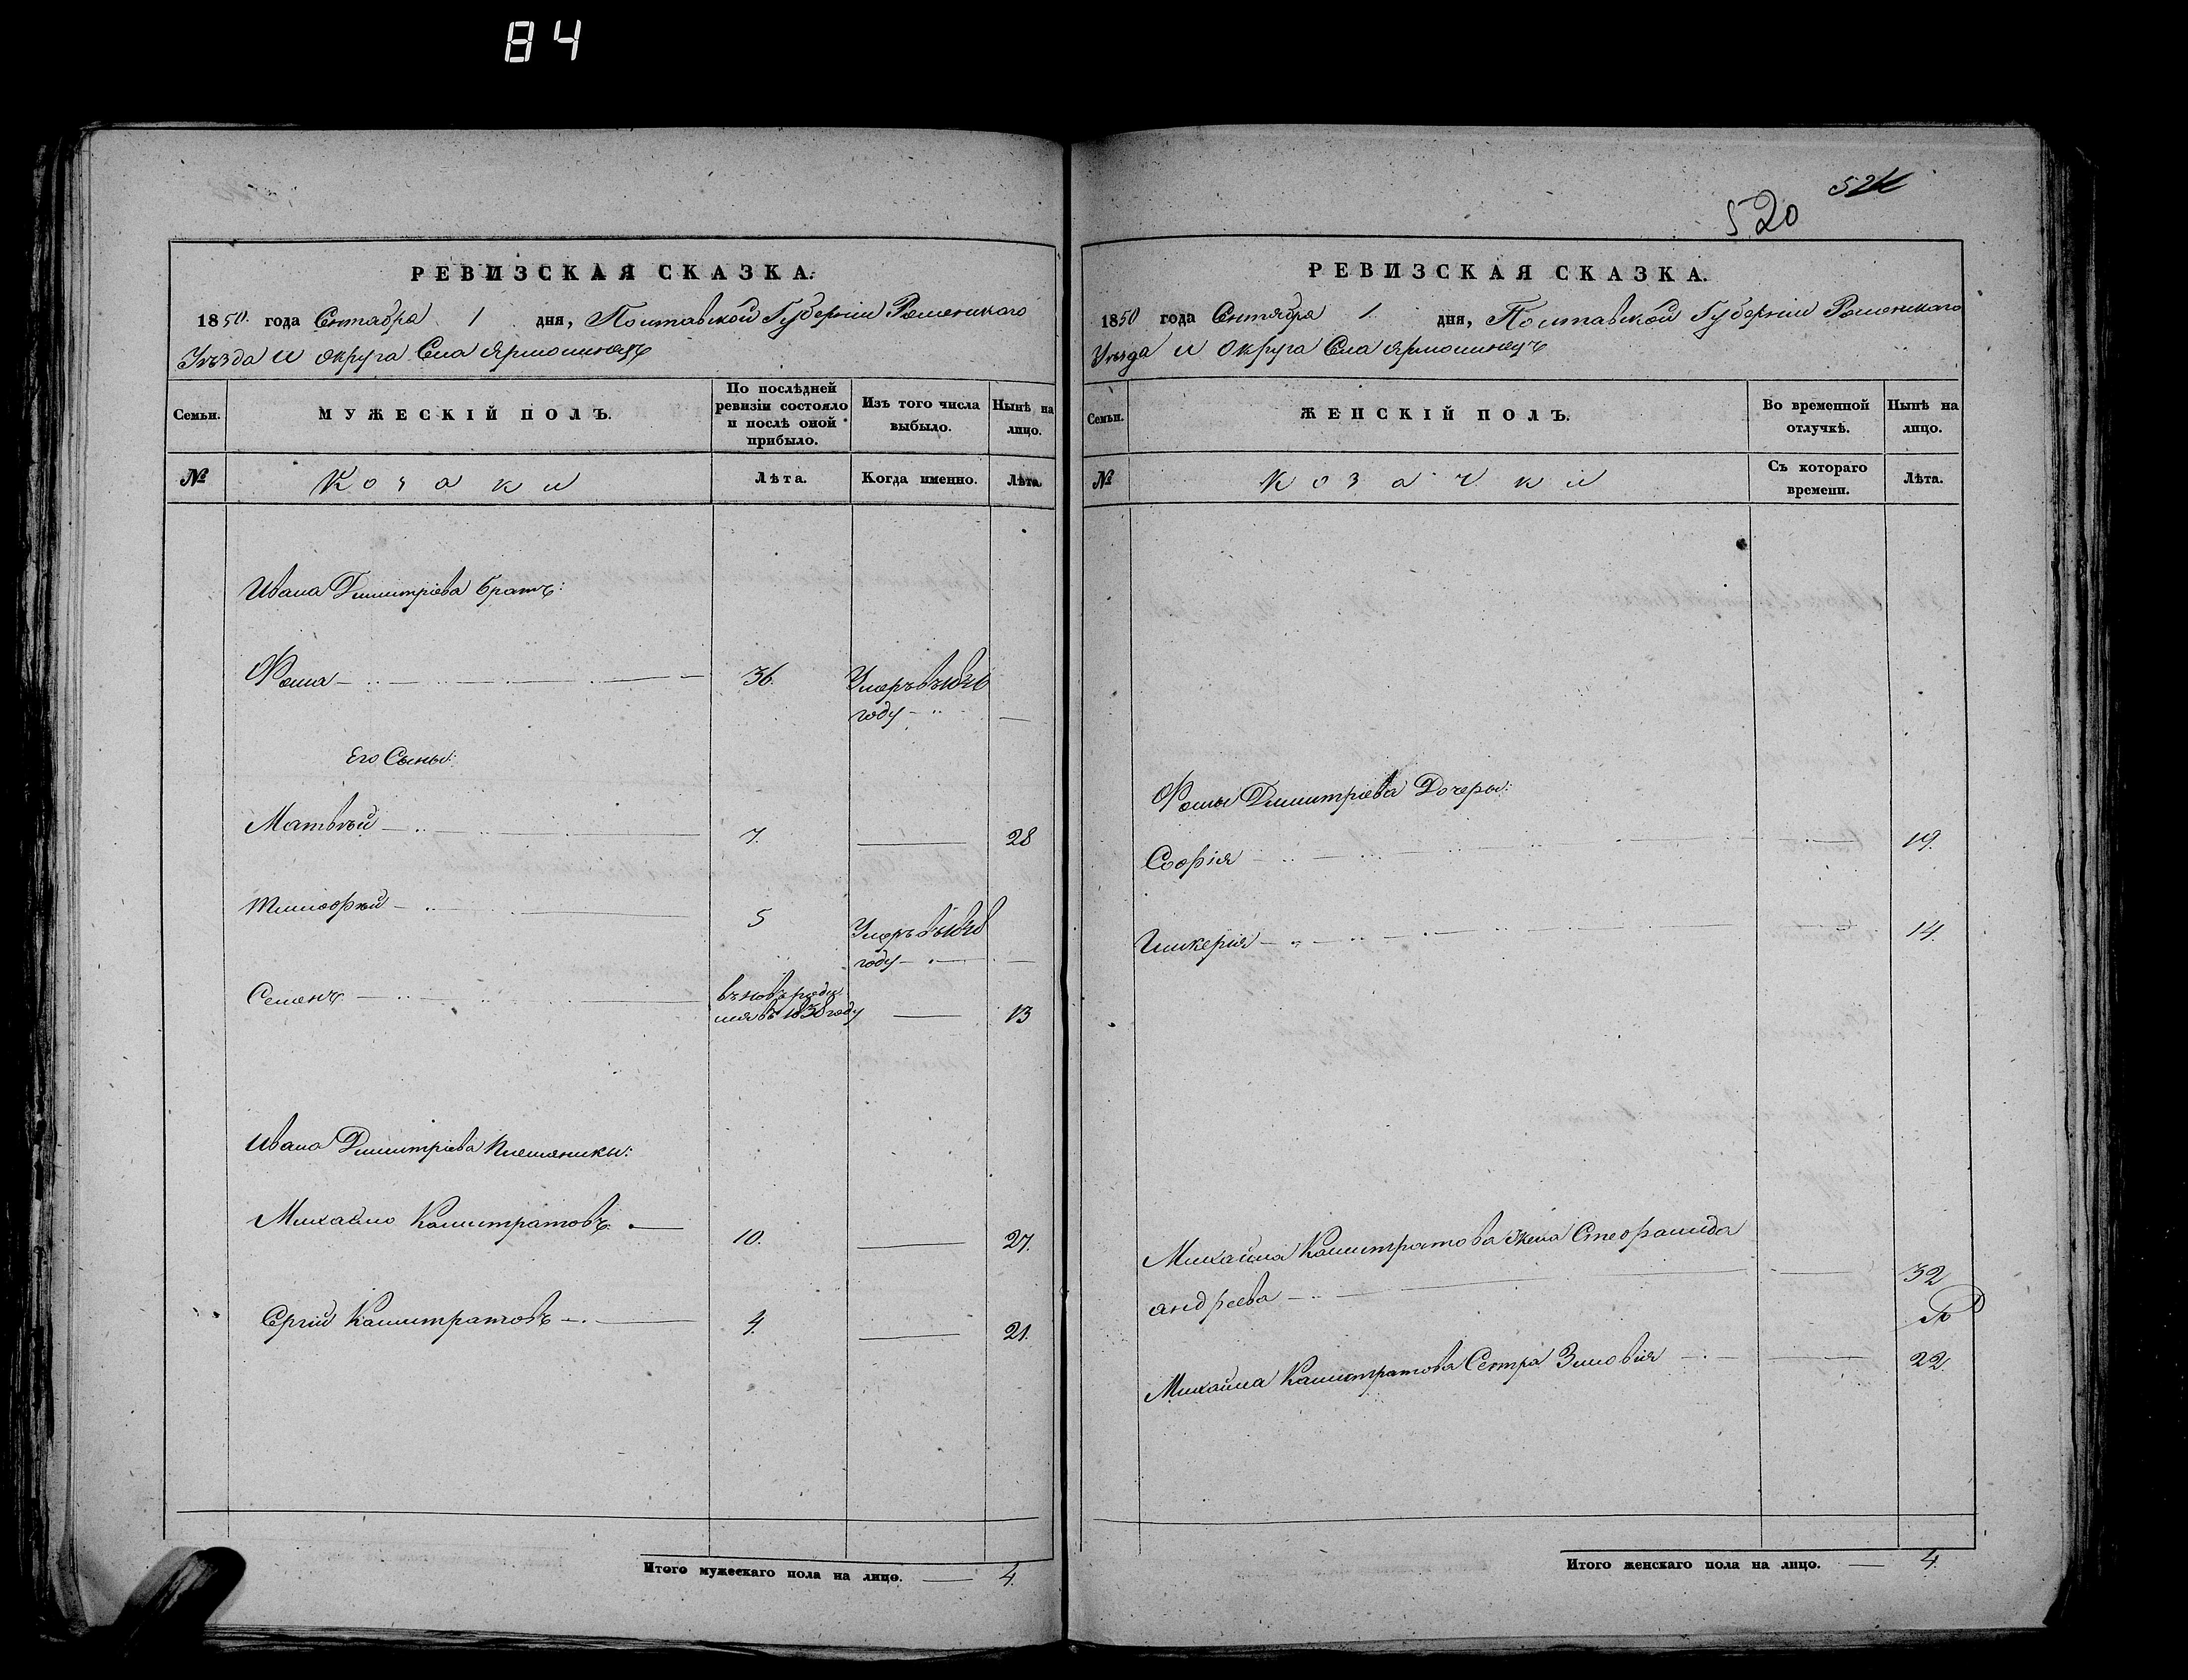 84
520
РЕВИЗСКАЯ СКАЗКА.
1850. года Сентября 1 дня, Полтавской Губерніи Роменского
Уѣзда и округа Села Ярмолинецъ
Семьи.
МУЖЕСКІЙ ПОЛЪ.
По послѣдней
ревизіи состояло
и послѣ оной
прибыло.
Изъ того числа
выбыло.
Нынѣ на
лицо.
№
Козаки
Лѣта.
Когда именно.
Лѣта.
Ивана Димитріева братъ:
Фома 36. Умеръ въ
году
Его Сыны:
Матвѣй 7. 28
Тимофѣй 5 Умеръ
году
Семенъ въновь роди
лся въ 1838 году 13
Ивана Димитріева племяники:
Михайло Калистратовъ 10. 27.
Сергій Калистратовъ 4. 21.
Итого мужескаго пола на лицо. 4.
РЕВИЗСКАЯ СКАЗКА.
1850 года Сентября 1 дня, Полтавской Губерніи Роменского
Уѣзда и Округа Села Ярмолинецъ
Семьи.
ЖЕНСКІЙ ПОЛЪ.
Во временной
отлучкѣ.
Нынѣ на
лицо.
№
Козачки
Съ котораго
времени.
Лѣта.
Фомы Димитріева Дочеры:
Софія 19.
Гликерія 14.
Михайла Калистратова жена Стефанида
андреева 32
Михайла Калистратова Сестра Зиновія 22.
Итого женскаго пола на лицо. 4.